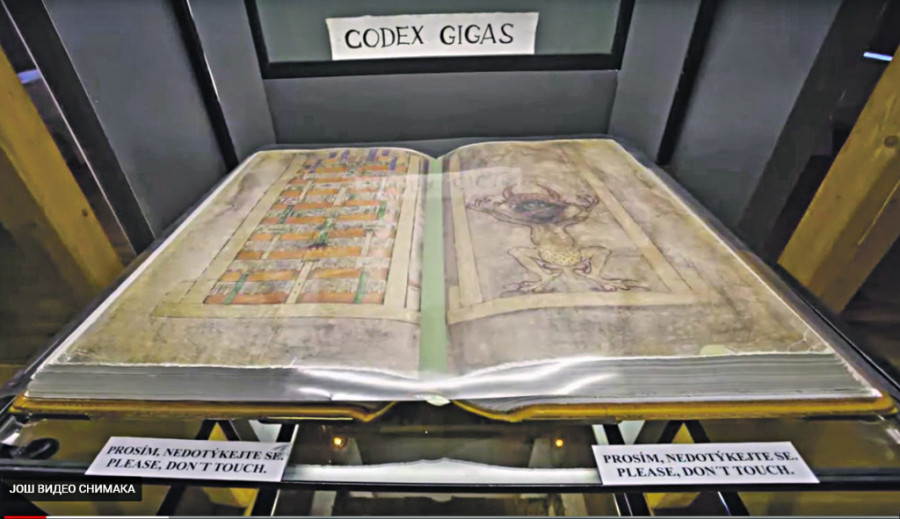 CODEX GIGAS
PROSÍM, NEDOTÝKEJTE SE.
PLEASE, DON'T TOUCH.
PROSÍM, NEDOTÝKEJTE SE.
PLEASE, DON'T TOUCH.
ЈОШ ВИДЕО СНИМАКА